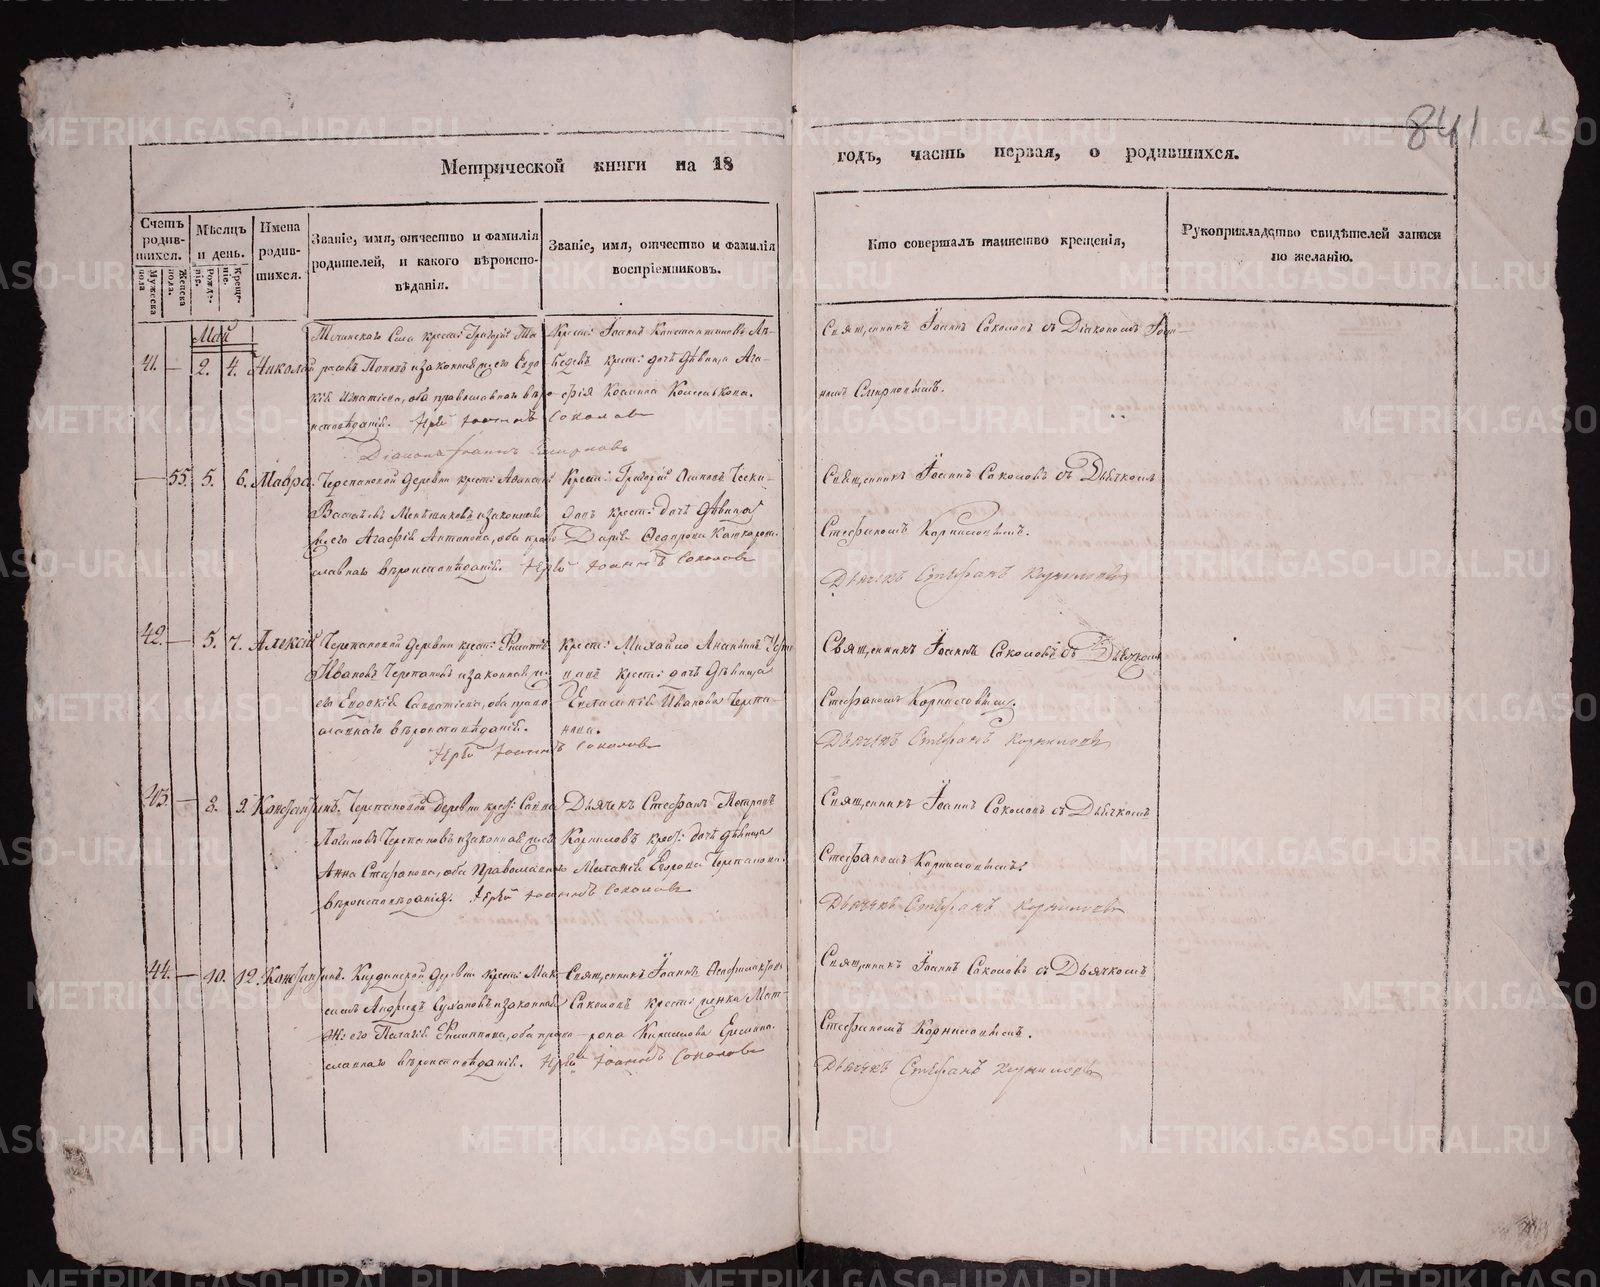 841
Метрической книги на 18 годъ, часть первая, о родившихся.
Счетъ родив-шихся.
Мужеска пола
Женска пола.
Мѣсяцъ и день.
Рожде-нiе.
Креще-нiе.
Имена родив-шихся.
Званiе, имя, отчество и фамилiя родителей, и какого вѣроиспо-вѣданiя.
Званiе, имя, отчество и фамилiя воспрiемниковъ.
Кто совершалъ таинство крещенiя,
Рукоприкладство свидѣтелей записи по желанiю.
Май
41. — 2. 4. Николай
Села крест: Григорiй
Поповъ и законная жена его
оба православнаго вѣро-
исповѣданiй. Iерей Iоаннъ Соколов
Дiаконъ Iоаннъ Смирновъ
Крест: Iоаннъ Константиновъ Ле-
бедевъ крест: дочь дѣвица Ага-
фiя
Священникъ Iоаннъ Соколовъ съ Дiакономъ Iоан-
номъ Смирновымъ.
— 55. 5. 6. Мавра.
Черепановой деревни крест:
Васильевъ и законная
ж: его Агафiя Антонова, оба право-
славнаго вѣроисповѣданiй. Iерей Iоаннъ Соколовъ
Крест: Григорiй Осиповъ
крест: дочь дѣвица
Дарiя Ѳедорова
Священникъ Iоаннъ Соколовъ съ Дьячкомъ
Стефаномъ Корниловымъ.
Дьячекъ Стефанъ Корниловъ
42. — 5. 7. Алексiй
Черепановой деревни крест: Филиппъ
Ивановъ Черепановъ и законная ж:
его Евдокiя Савватiева, оба право-
славнаго вѣроисповѣданiй.
Iерей Iоаннъ Соколовъ
крест: Михайло Ананьинъ
крест: дочь дѣвица
Евлампiя Иванова Черепа-
нова.
Священникъ Iоаннъ Соколовъ съ Дьячкомъ
Стефаномъ Корниловым.
Дьячекъ Стефанъ Корниловъ
43. — 8. 9. Константинъ.
Черепановой деревни крест: Савва
Логиновъ Черепановъ и законная ж: его
Анна Стефанова, оба Православнаго
вѣроисповѣданiя. Iерей Iоаннъ Соколовъ
Дьячекъ Стефанъ Петровъ
Корниловъ крест: дочь дѣвица
Меланiя Егорова Черепанова.
Священникъ Iоаннъ Соколовъ съ Дьячкомъ
Стефаномъ Корниловымъ.
Дьячекъ Стефанъ Корниловъ
44. — 10. 12. Константинъ.
деревни крест: Мак-
симъ Андреевъ Сухановъ и законная
ж: его Пелагiя Филиппова, оба право-
славнаго вѣроисповѣданiй. Iерей Iоаннъ Соколовъ
Священникъ Iоаннъ
Соколовъ крест: женка Мат-
рона Кирилова
Священникъ Iоаннъ Соколовъ съ Дьячкомъ
Стефаномъ Корниловымъ.
Дьячекъ Стефанъ Корниловъ
METRIKI.GASO-URAL.RU